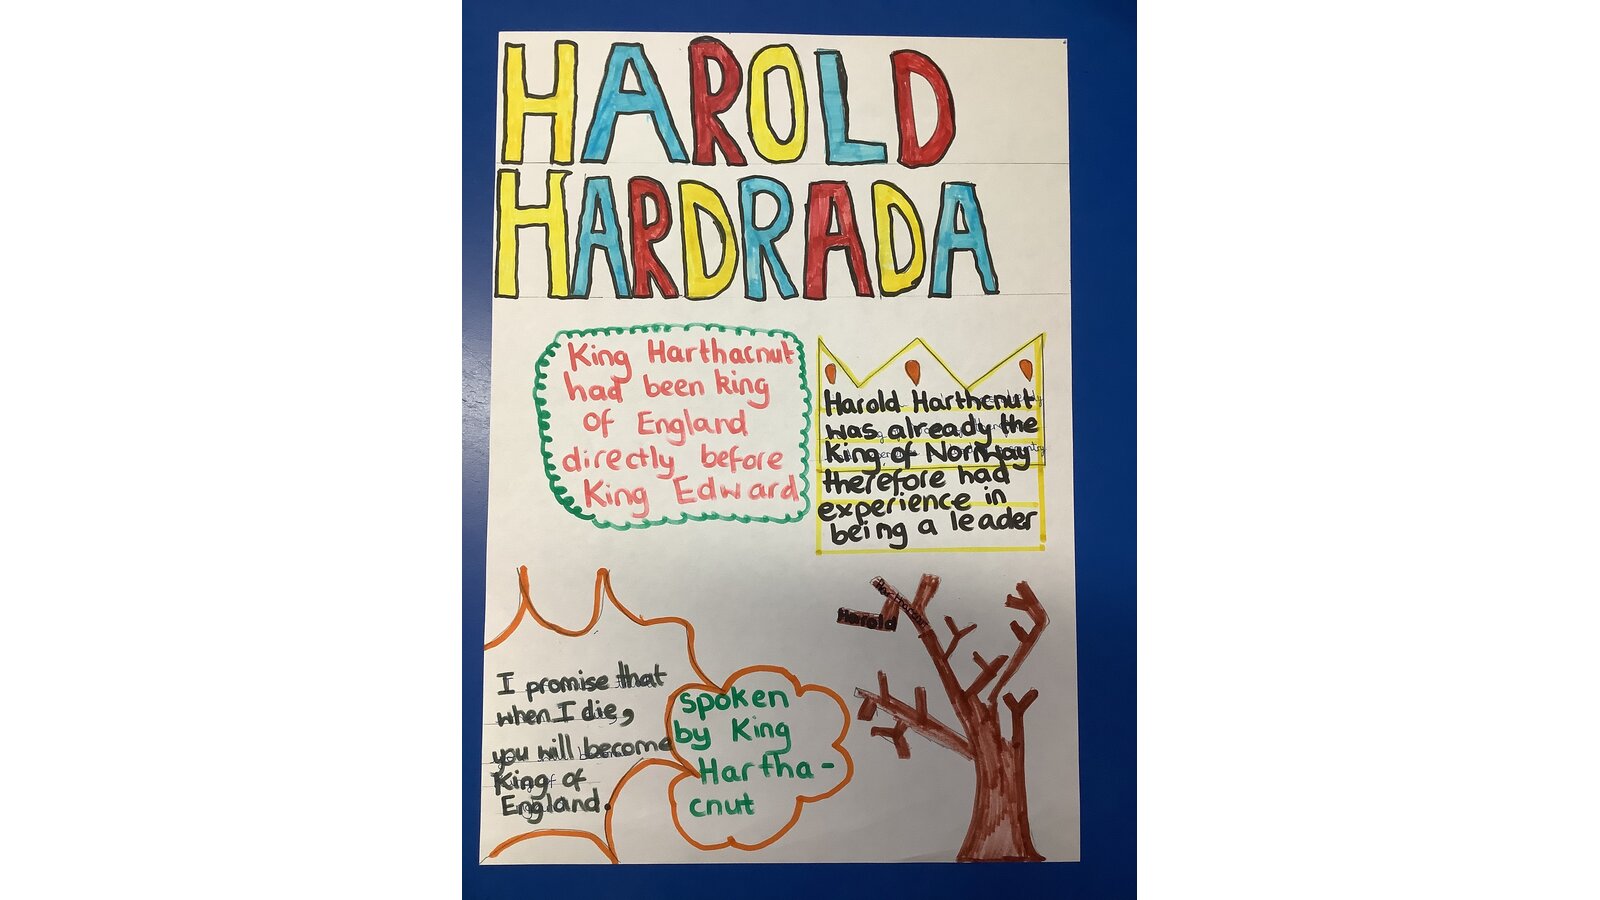 HAROLD
HARDRADA
King Harthacnut
had been king
of England
directly before
King Edward
Harold Harthcnut
was already the
King of Norway
therefore had
experience in
being a leader
Harthacnut
Harold
I promise that
when I die,
you will become
King of
England.
spoken
by King
Hartha-
cnut